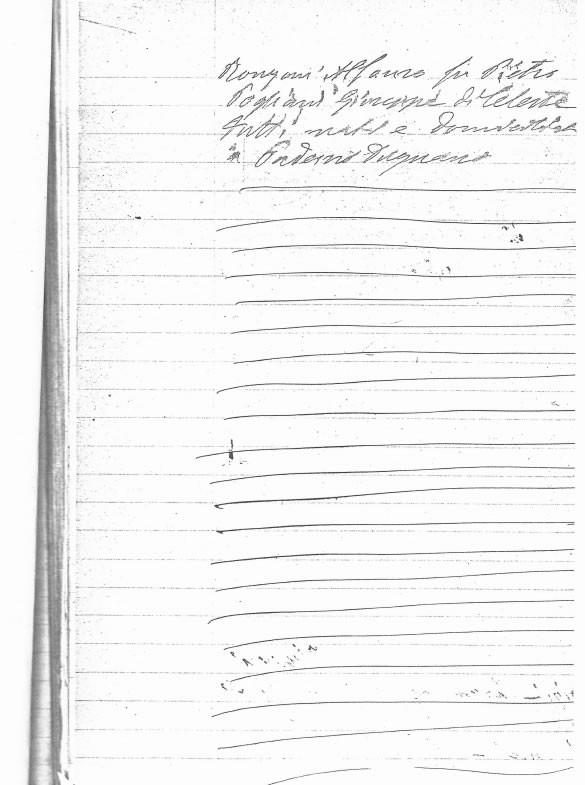 Ronzoni Alfauro fu Pietro
Pogliani Giuseppe di Celeste
tutti nati e domiciliati
a Paderno Dugnano